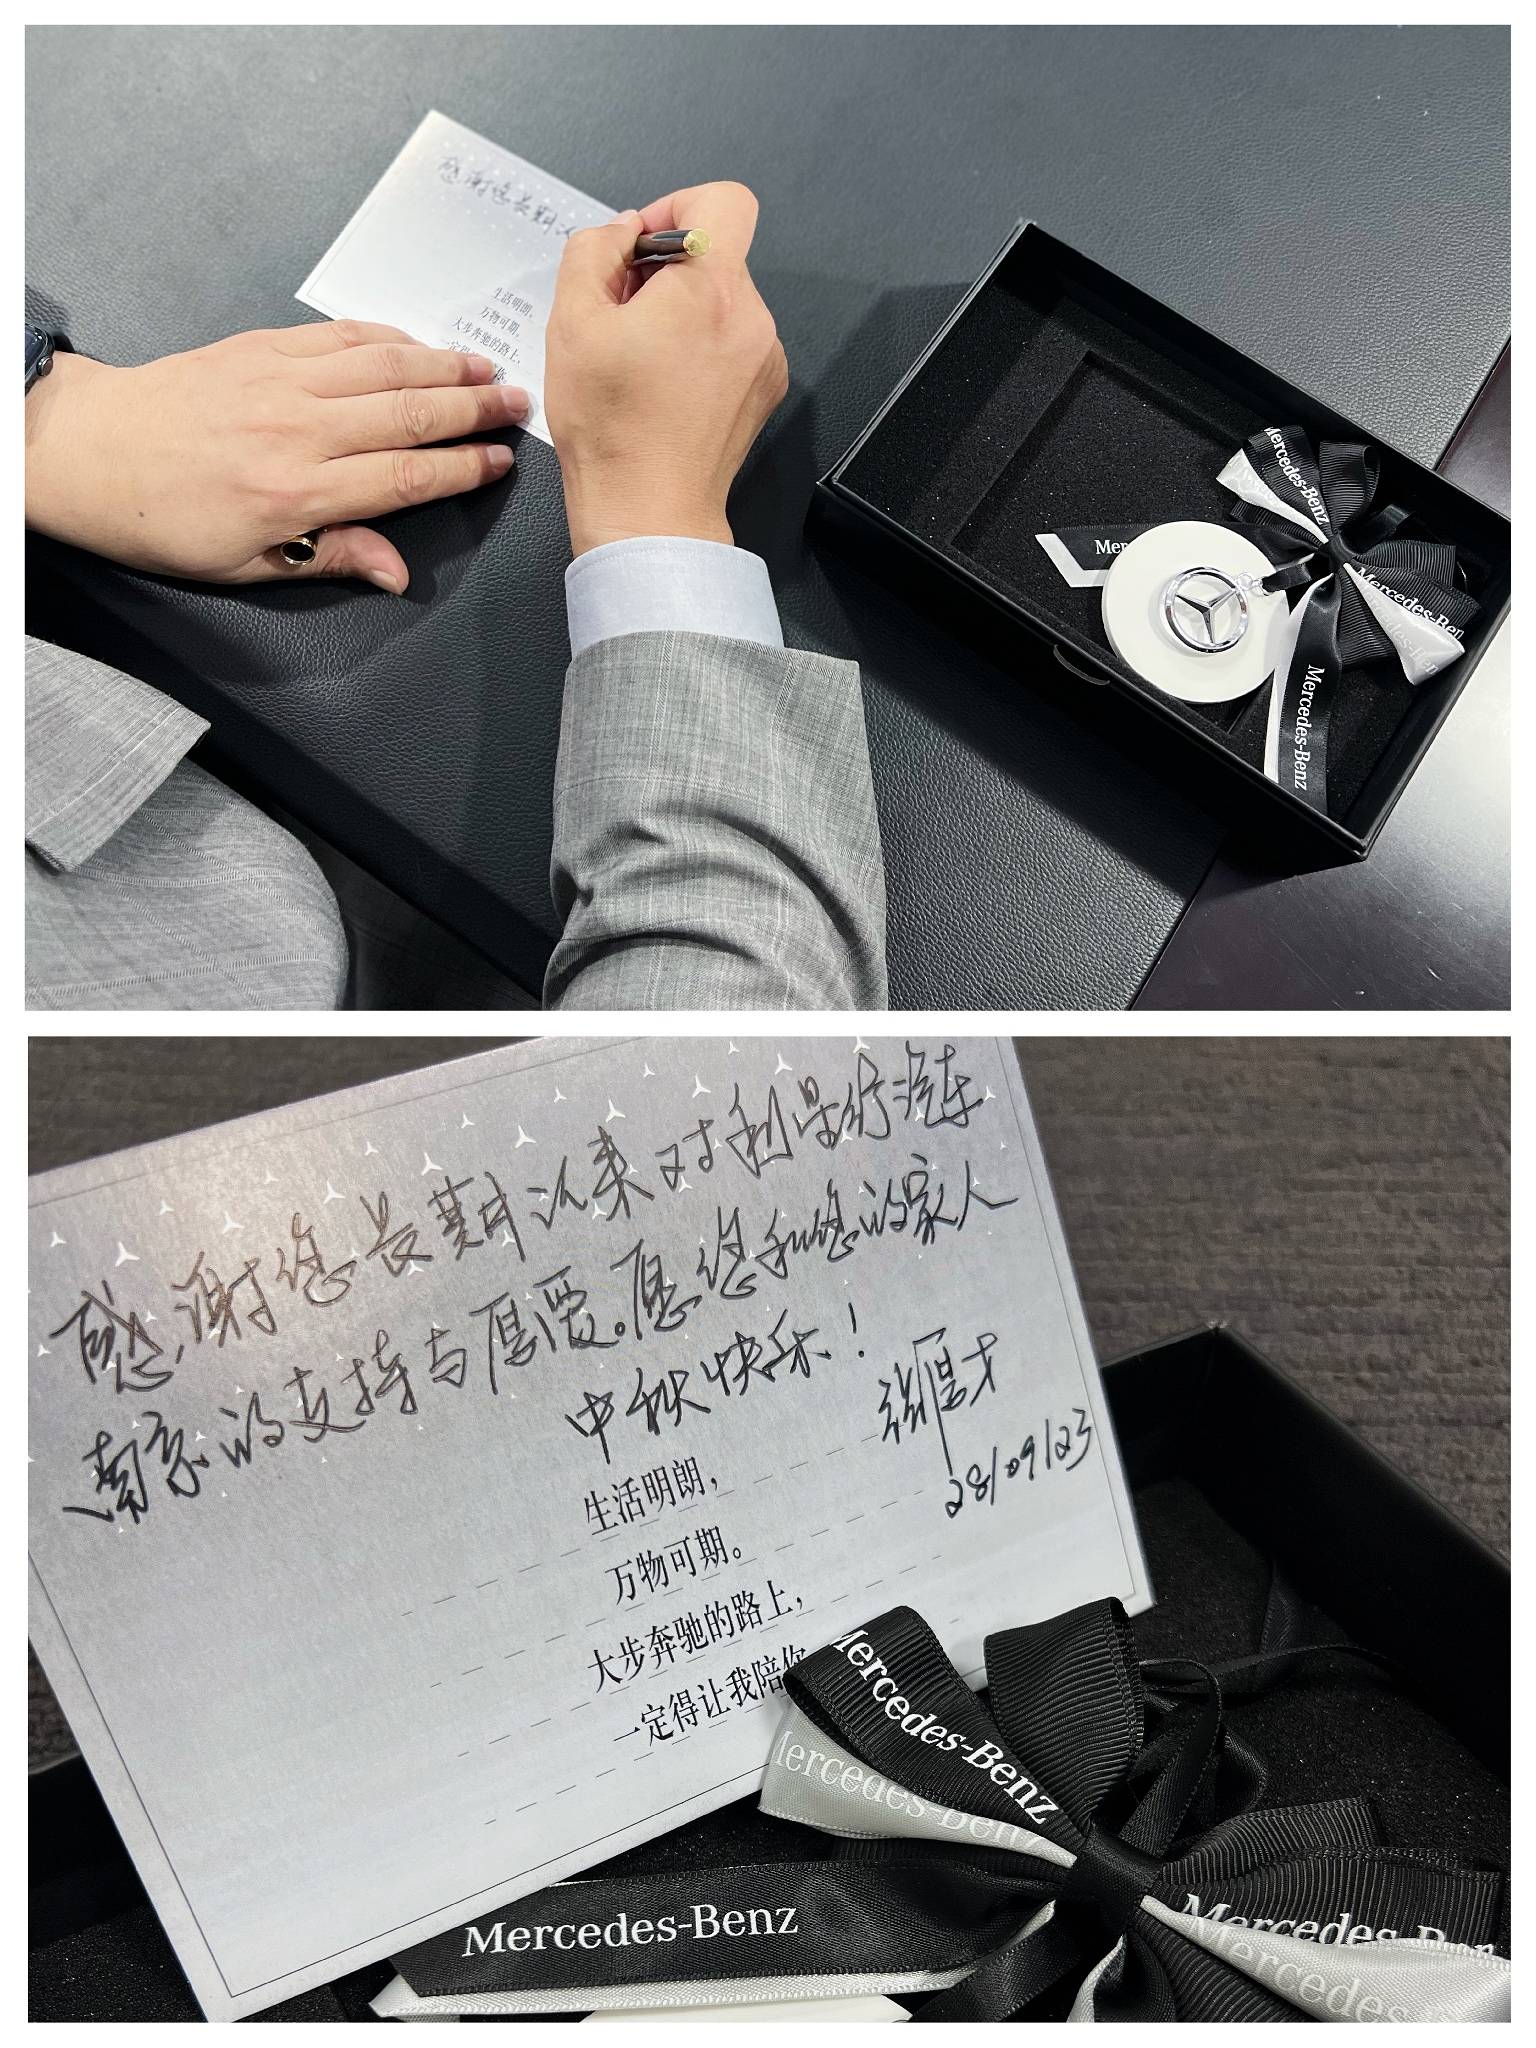 感谢您长期以
生活明朗，
万物可期。
大步奔驰的路上，
Mercedes-Benz
Mercedes-Benz
Mercedes-Benz
感谢您长期以来对利星行汽车
南京的支持与厚爱。愿您和您的家人
中秋快乐！
28/09/23
生活明朗，
万物可期。
大步奔驰的路上，
一定得让我陪你
Mercedes-Benz
Mercedes-Benz
Mercedes-Benz
Mercedes-Benz
Mercedes